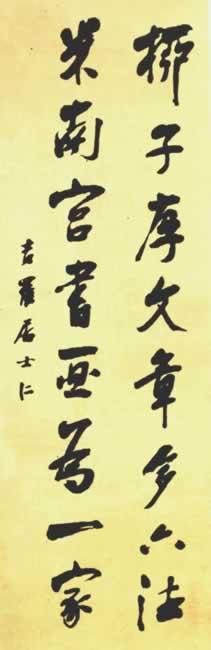 柳子厚文章多六法
米南宮書画為一家
吉羅居士仁